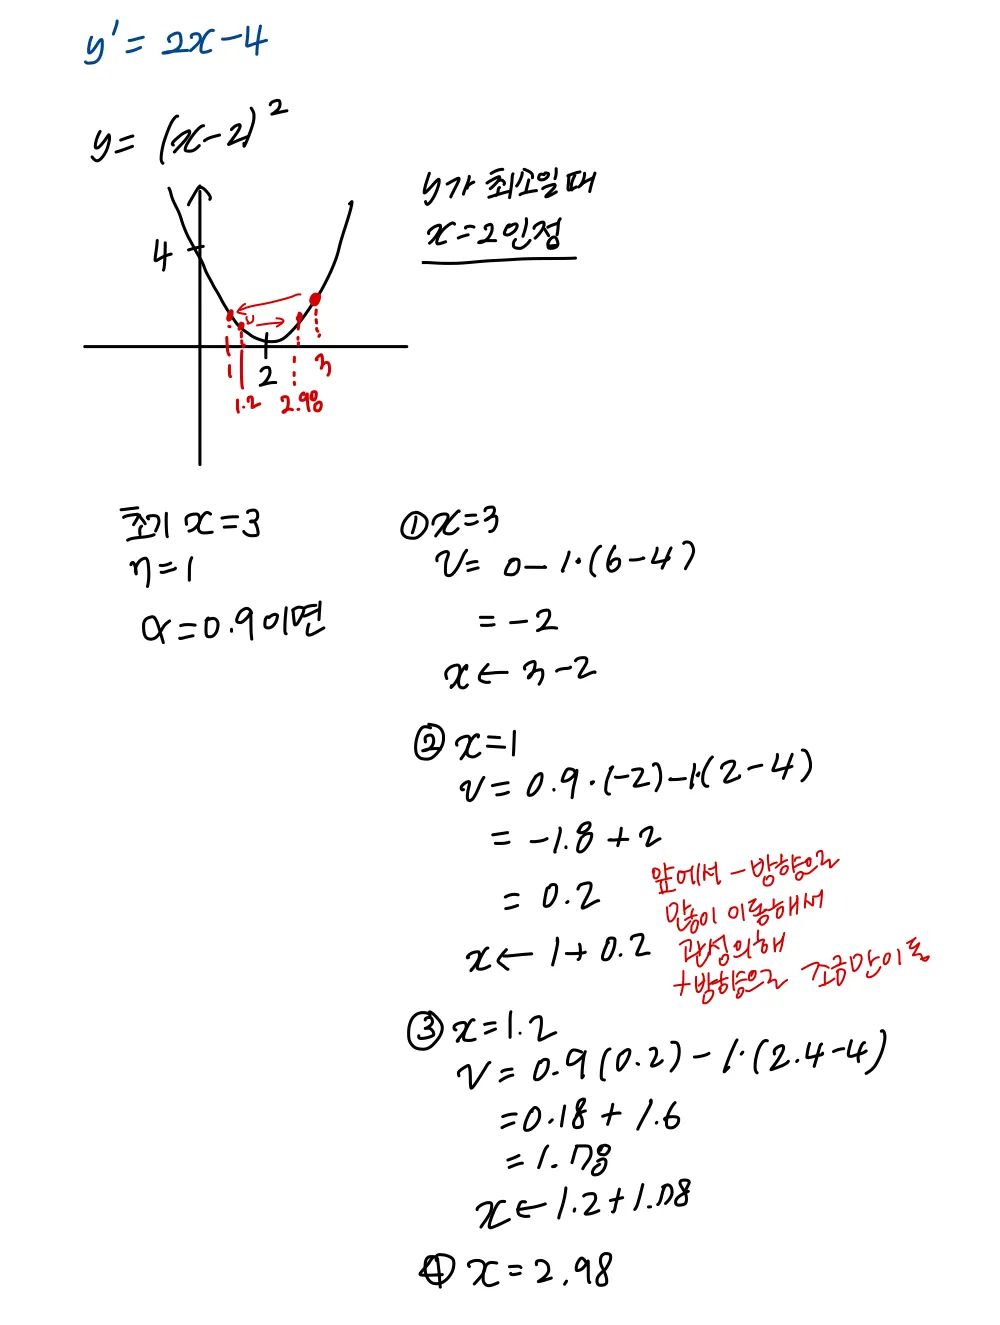 y' = 2x-4
y = (x-2)²
y가 최소일때
x=2인정
4
2
1
1.2
2.98
3
초기 x=3
η=1
α=0.9이면
① x=3
v= 0-1·(6-4)
= -2
x ← 3-2
② x=1
v= 0.9·(-2)-1·(2-4)
= -1.8+2
= 0.2
x ← 1+0.2
앞에서 - 방향으로
많이 이동해서
관성의해
+방향으로 조금만이동
③ x=1.2
v= 0.9(0.2)-1·(2.4-4)
=0.18+1.6
=1.78
x ← 1.2+1.78
④ x=2.98